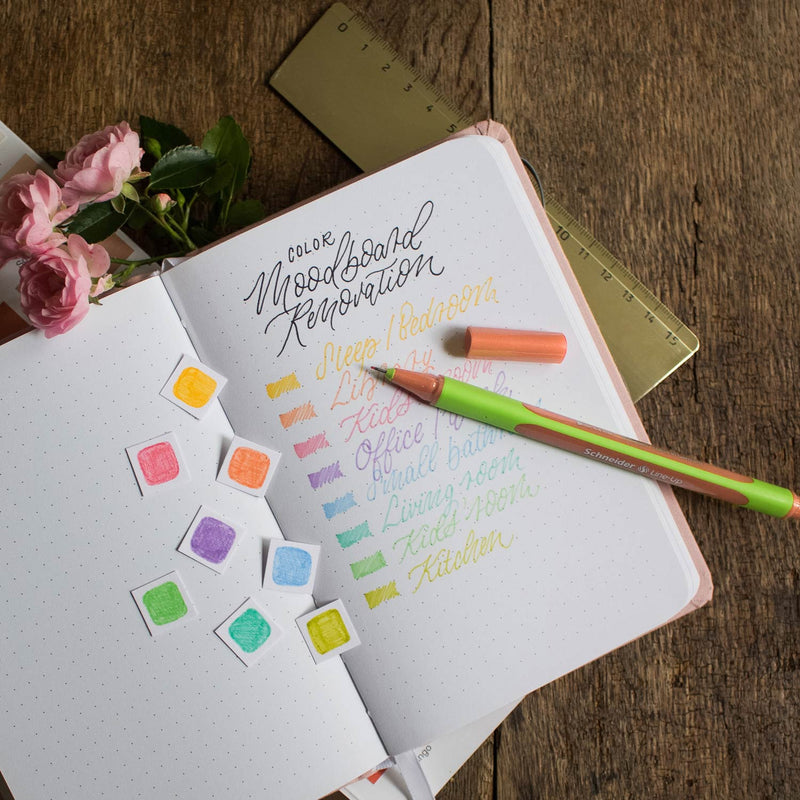 COLOR
Moodboard
Renovation
Sleep / Bedroom
Library
Kid's room
Office /
Small bathroom
Living room
Kid's room
Kitchen
Schneider Line-Up
0 1 2 3 4 5
10 11 12 13 14 15
ngo